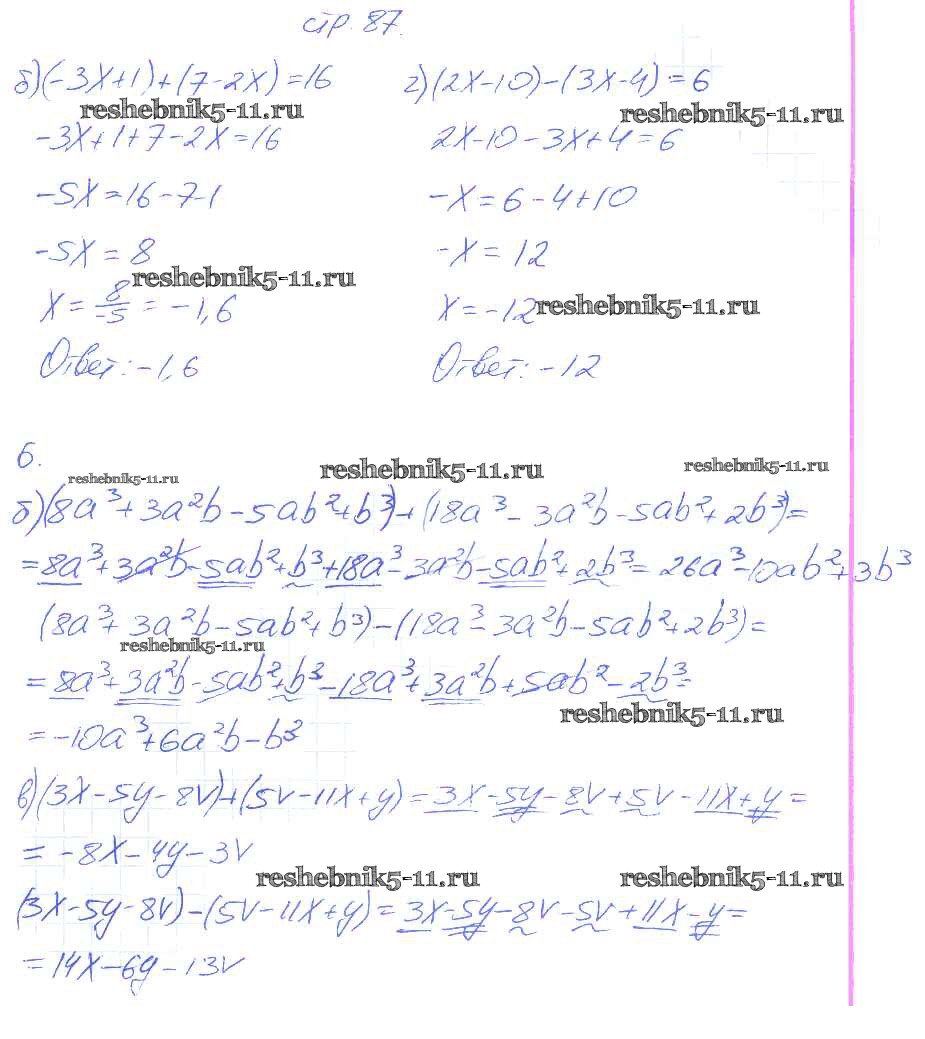 стр. 87.
б) (-3x+1)+(7-2x)=16
reshebnik5-11.ru
-3x+1+7-2x=16
-5x=16-7-1
-5x=8
reshebnik5-11.ru
x=8/-5=-1,6
Ответ: -1,6
г) (2x-10)-(3x-4)=6
reshebnik5-11.ru
2x-10-3x+4=6
-x=6-4+10
-x=12
x=-12
reshebnik5-11.ru
Ответ: -12
6.
reshebnik5-11.ru reshebnik5-11.ru reshebnik5-11.ru
б) (8a³+3a²b-5ab²+b³)+(18a³-3a²b-5ab²+2b³)=
=8a³+3a²b-5ab²+b³+18a³-3a²b-5ab²+2b³=26a³-10ab²+3b³
(8a³+3a²b-5ab²+b³)-(18a³-3a²b-5ab²+2b³)=
reshebnik5-11.ru
=8a³+3a²b-5ab²+b³-18a³+3a²b+5ab²-2b³=
reshebnik5-11.ru
=-10a³+6a²b-b³
в) (3x-5y-8v)+(5v-11x+y)=3x-5y-8v+5v-11x+y=
=-8x-4y-3v
reshebnik5-11.ru reshebnik5-11.ru
(3x-5y-8v)-(5v-11x+y)=3x-5y-8v-5v+11x-y=
=14x-6y-13v